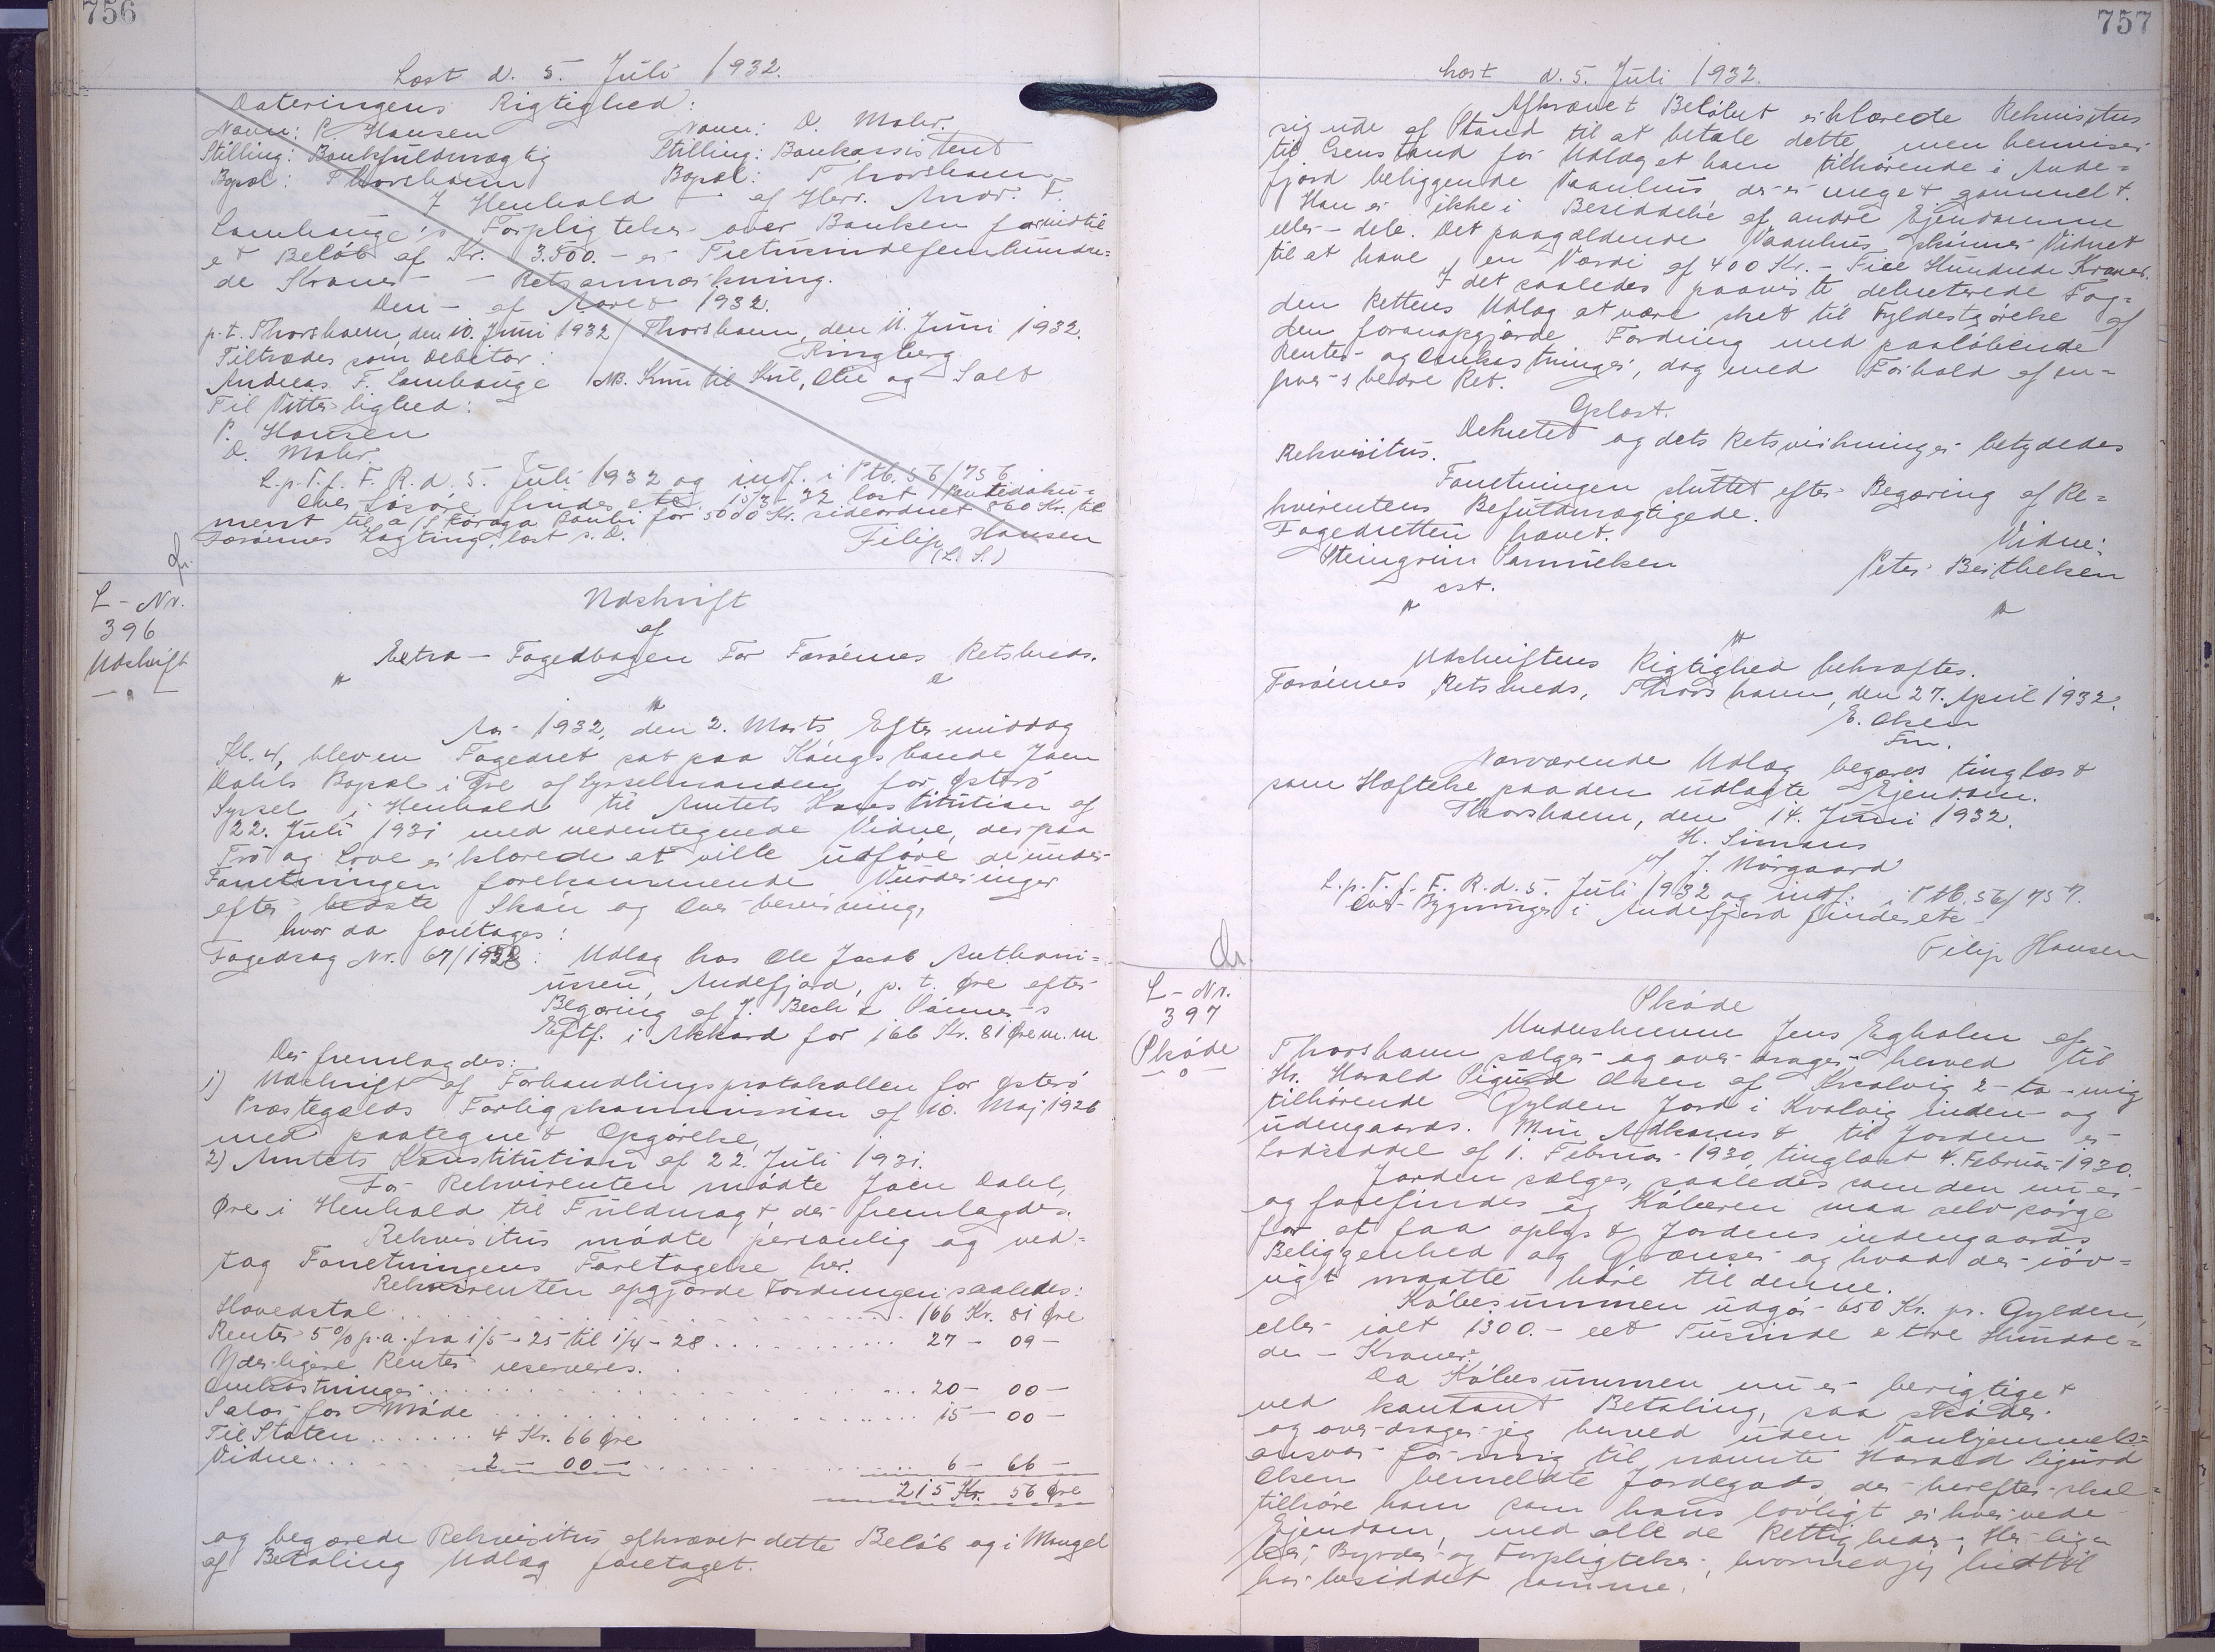 756
Læst d. 5. Juli 1932.
Dateringens Rigtighed:
Navn: P. Hansen Navn: D. Mohr.
Stilling: Bankfuldmægtig Stilling: Bankassistent
Bopæl: Thorshavn Bopæl: Thorshavn
I Henhold - af Herr. Andr. F.
Lamhauge's Forpligtelser overfor Banken formidtil
et Beløb af Kr. 3.500.- er Tretusindefemhundre=
de Kroner - Retsanmærkning.
Den - af Aaret 1932.
p.t. Thorshavn, den 10. Juni 1932 / Thorshavn, den 11. Juni 1932.
Tiltrædes som Debitor: Ringberg
Andreas F. Lamhauge / NB. Kun til Kul, Olie og Salt
Til Vitterlighed:
P. Hansen
D. Mohr.
L.p.T.f. F. R. d. 5. Juli 1932 og indf. i Ptb. 56/756
Over Løsøre findes etc. 15/3-32 læst Pantedoku=
ment til a/s Føroya Banki for 5000 Kr. sideordnet 860 Kr. til
Færøernes Lagting, læst s. D.
Filip Hansen
(L. S.)
L-Nr.
396
Udskrift
Udskrift
af
Extra-Fogedbogen For Færøernes Retskreds.
Aar 1932, den 2. Marts Eftermiddag
Kl. 4, blev en Fogedret sat paa Kongsbonde Joen
Dahls Bopæl i Øre af Sysselmanden for Østerø
Syssel i Henhold til Amtets Konstitution af
22. Juli 1931 med undertegnede Vidne, der paa
Tro og Love erklærede at ville udføre de under
Forretningen forekommende Vurderinger
efter bedste Skøn og Overbevisning,
hvor da foretages:
Fogedsag Nr. 67/1928: Udlag hos Ole Jacob Anthoni=
ussen, Andefjord, p. t. Øre efter
Begæring af J. Bech & Sønner-s
Eftf. i Akkord for 166 Kr. 81 Øre m. m
Der fremlagdes:
1) Udskrift af Forhandlingsprotokollen for Østerø
Præstegælds Forligskommission af 10. Maj 1926
med paategnet Opgørelse,
2) Amtets Konstitution af 22. Juli 1931.
For Rekvirenten mødte Joen Dahl,
Øre i Henhold til Fuldmagt, der fremlagdes.
Rekvisitus mødte personlig og ved=
tog Forretningens Foretagelse her.
Rekvirenten opgjorde Fordringen saaledes:
Hovedstol . . . 166 Kr. 81 Øre
Renter 5% p.a. fra 1/5-25 til 1/4-28 . . . 27 - 09 -
Yderligere Renter reserveres.
Omkostninger . . . 20 - 00 -
Salær for Møde . . . 15 - 00 -
Til Staten . . . 4 Kr. 66 Øre
Vidne . . . 2 - 00 - . . . 6 - 66 -
215 Kr. 56 Øre
og begærede Rekvisitus afkrævet dette Beløb og i Mangel
af Betaling Udlag foretaget.
757
Læst d. 5. Juli 1932.
Afkrævet Beløbet erklærede Rekvisitus
sig ude af Stand til at betale dette, men henviser
til Genstand for Udlag et ham tilhørende i Ande=
fjord beliggende Vaanhus, der er meget gammelt.
Han er ikke i Besiddelse af andre Ejendomme
eller-dele. Det paagældende Vaanhus skønner Vidnet
til at have en Værdi af 400 Kr. - Fire Hundrede Kroner.
I det saaledes paaviste dekreterede Fog=
den Rettens Udlag at være sket til Fyldestgørelse af
den foranopgjorde Fordring med paaløbende
Renter- og Omkostninger, dog med Forhold af en=
hver-s bedre Ret.
Oplæst.
Dekretet og dets Retsvirkninger betydedes
Rekvisitus.
Forretningen sluttet efter Begæring af Re=
kvirentens Befuldmægtigede.
Fogedretten hævet.
Steingrim Samuelsen Vidne:
cst. Peter Berthelsen
Udskriftens Rigtighed bekræftes.
Færøernes Retskreds, Thorshavn, den 27. April 1932.
E. Olsen
Fm.
Nærværende Udlæg begæres tinglæst
som Hæftelse paa den udlagte Ejendom.
Thorshavn, den 14. Juni 1932.
H. Simons
J. Nórgaard
L.p.T.f. F. R. d. 5. Juli 1932 og indf. i Ptb. 56/757.
Over Bygninger i Andefjord findes etc
Filip Hansen
L-Nr.
397
Skøde
Skøde
Underskrevne Jens Egholm af
Thorshavn sælger og overdrager herved til
Hr. Harald Sigurd Olsen af Kvalvig 2-to-mig
tilhørende Gylden Jord i Kvalvig inden- og
udengaards. Min Adkomst til Jorden er
Lodseddel af 1. Februar 1930, tinglæst 4. Februar 1930.
Jorden sælges, saaledes som den nu er
og forefindes og Køberen maa selv sørge
for at faa oplyst Jordens indengaards
Beliggenhed og Grænser og hvad der iøv=
rigt maatte høre til denne.
Købesummen udgør 650 Kr. pr. Gylden,
eller ialt 1300.- eet Tusinde etre Hundre=
de - Kroner.
Da Købesummen nu er berigtiget
ved kontant Betaling, saa skøder
og overdrager jeg herved uden Vanhjemmels=
ansvar for mig til nævnte Harald Sigurd
Olsen bemeldte Jordegods, der herefter skal
tilhøre ham som hans lovligt erhvervede
Ejendom, med alle de Rettigheder, Herlig=
heder, Byrder og Forpligtelser, hvormed jeg hidtil
har besiddet samme.